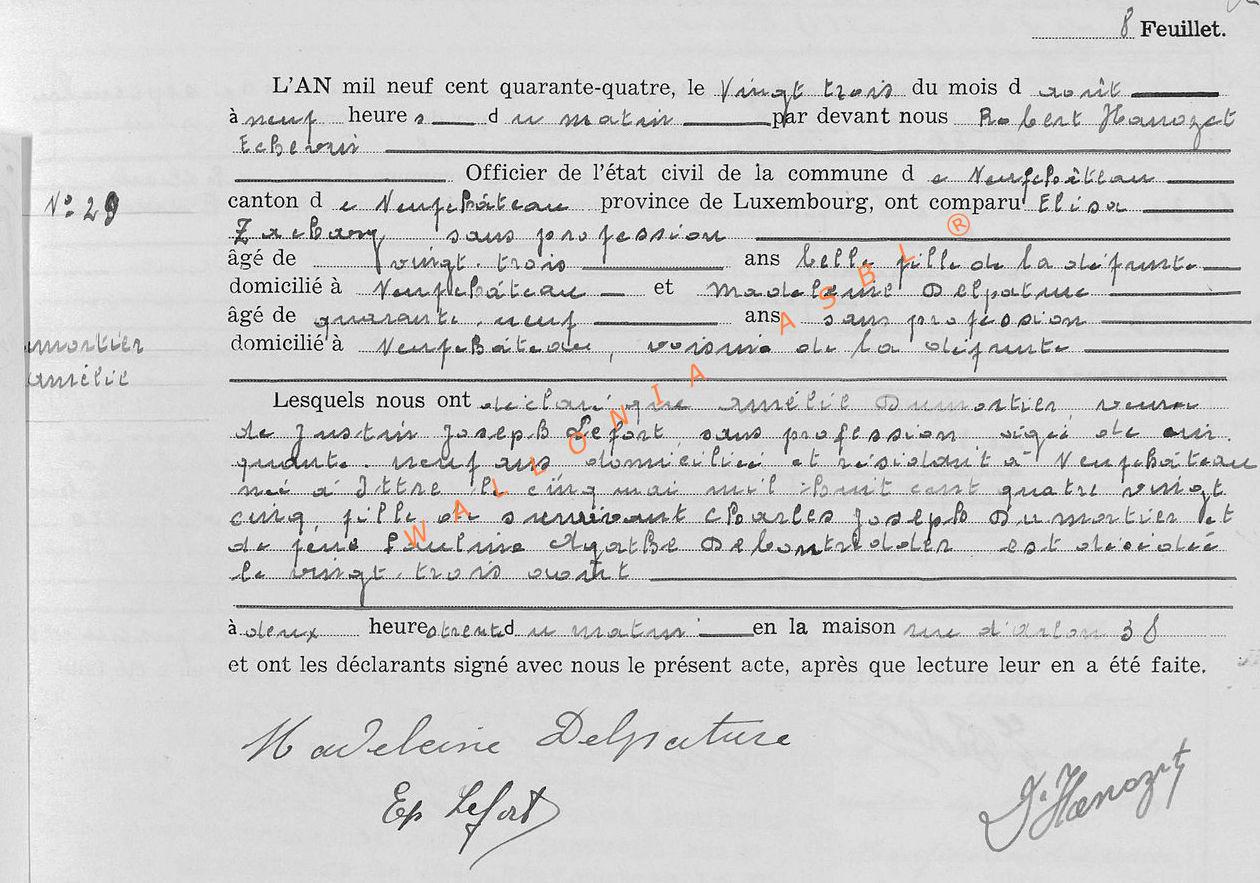 8 Feuillet.
L'AN mil neuf cent quarante-quatre, le Vingt trois du mois d août
à neuf heure s d u matin par devant nous Robert Hanozet
Echevin
Officier de l'état civil de la commune d e Neufchâteau
N° 29
canton d e Neufchâteau province de Luxembourg, ont comparu Elisa
sans profession
âgé de vingt-trois ans belle fille de la défunte
domicilié à Neufchâteau et Madeleine Delpature
âgé de quarante-neuf ans sans profession
mortier
amélie
domicilié à Neufchâteau, voisine de la défunte
Lesquels nous ont déclaré que Amélie Dumortier, veuve
de Justin Joseph Lefort, sans profession, agée de cin-
quante-neuf ans, domiciliée et résidant à Neufchâteau
née à Ittre le cinq mai mil huit cent quatre vingt
cinq, fille de survivant Charles Joseph Dumortier et
de feue Pauline Agathe Debontridder est décédée
le vingt-trois août
à deux heures trente d u matin en la maison rue d'Arlon 38
et ont les déclarants signé avec nous le présent acte, après que lecture leur en a été faite.
Madeleine Delpature
Ep Lefort
Hanozet
WALLONIA ASBL ®